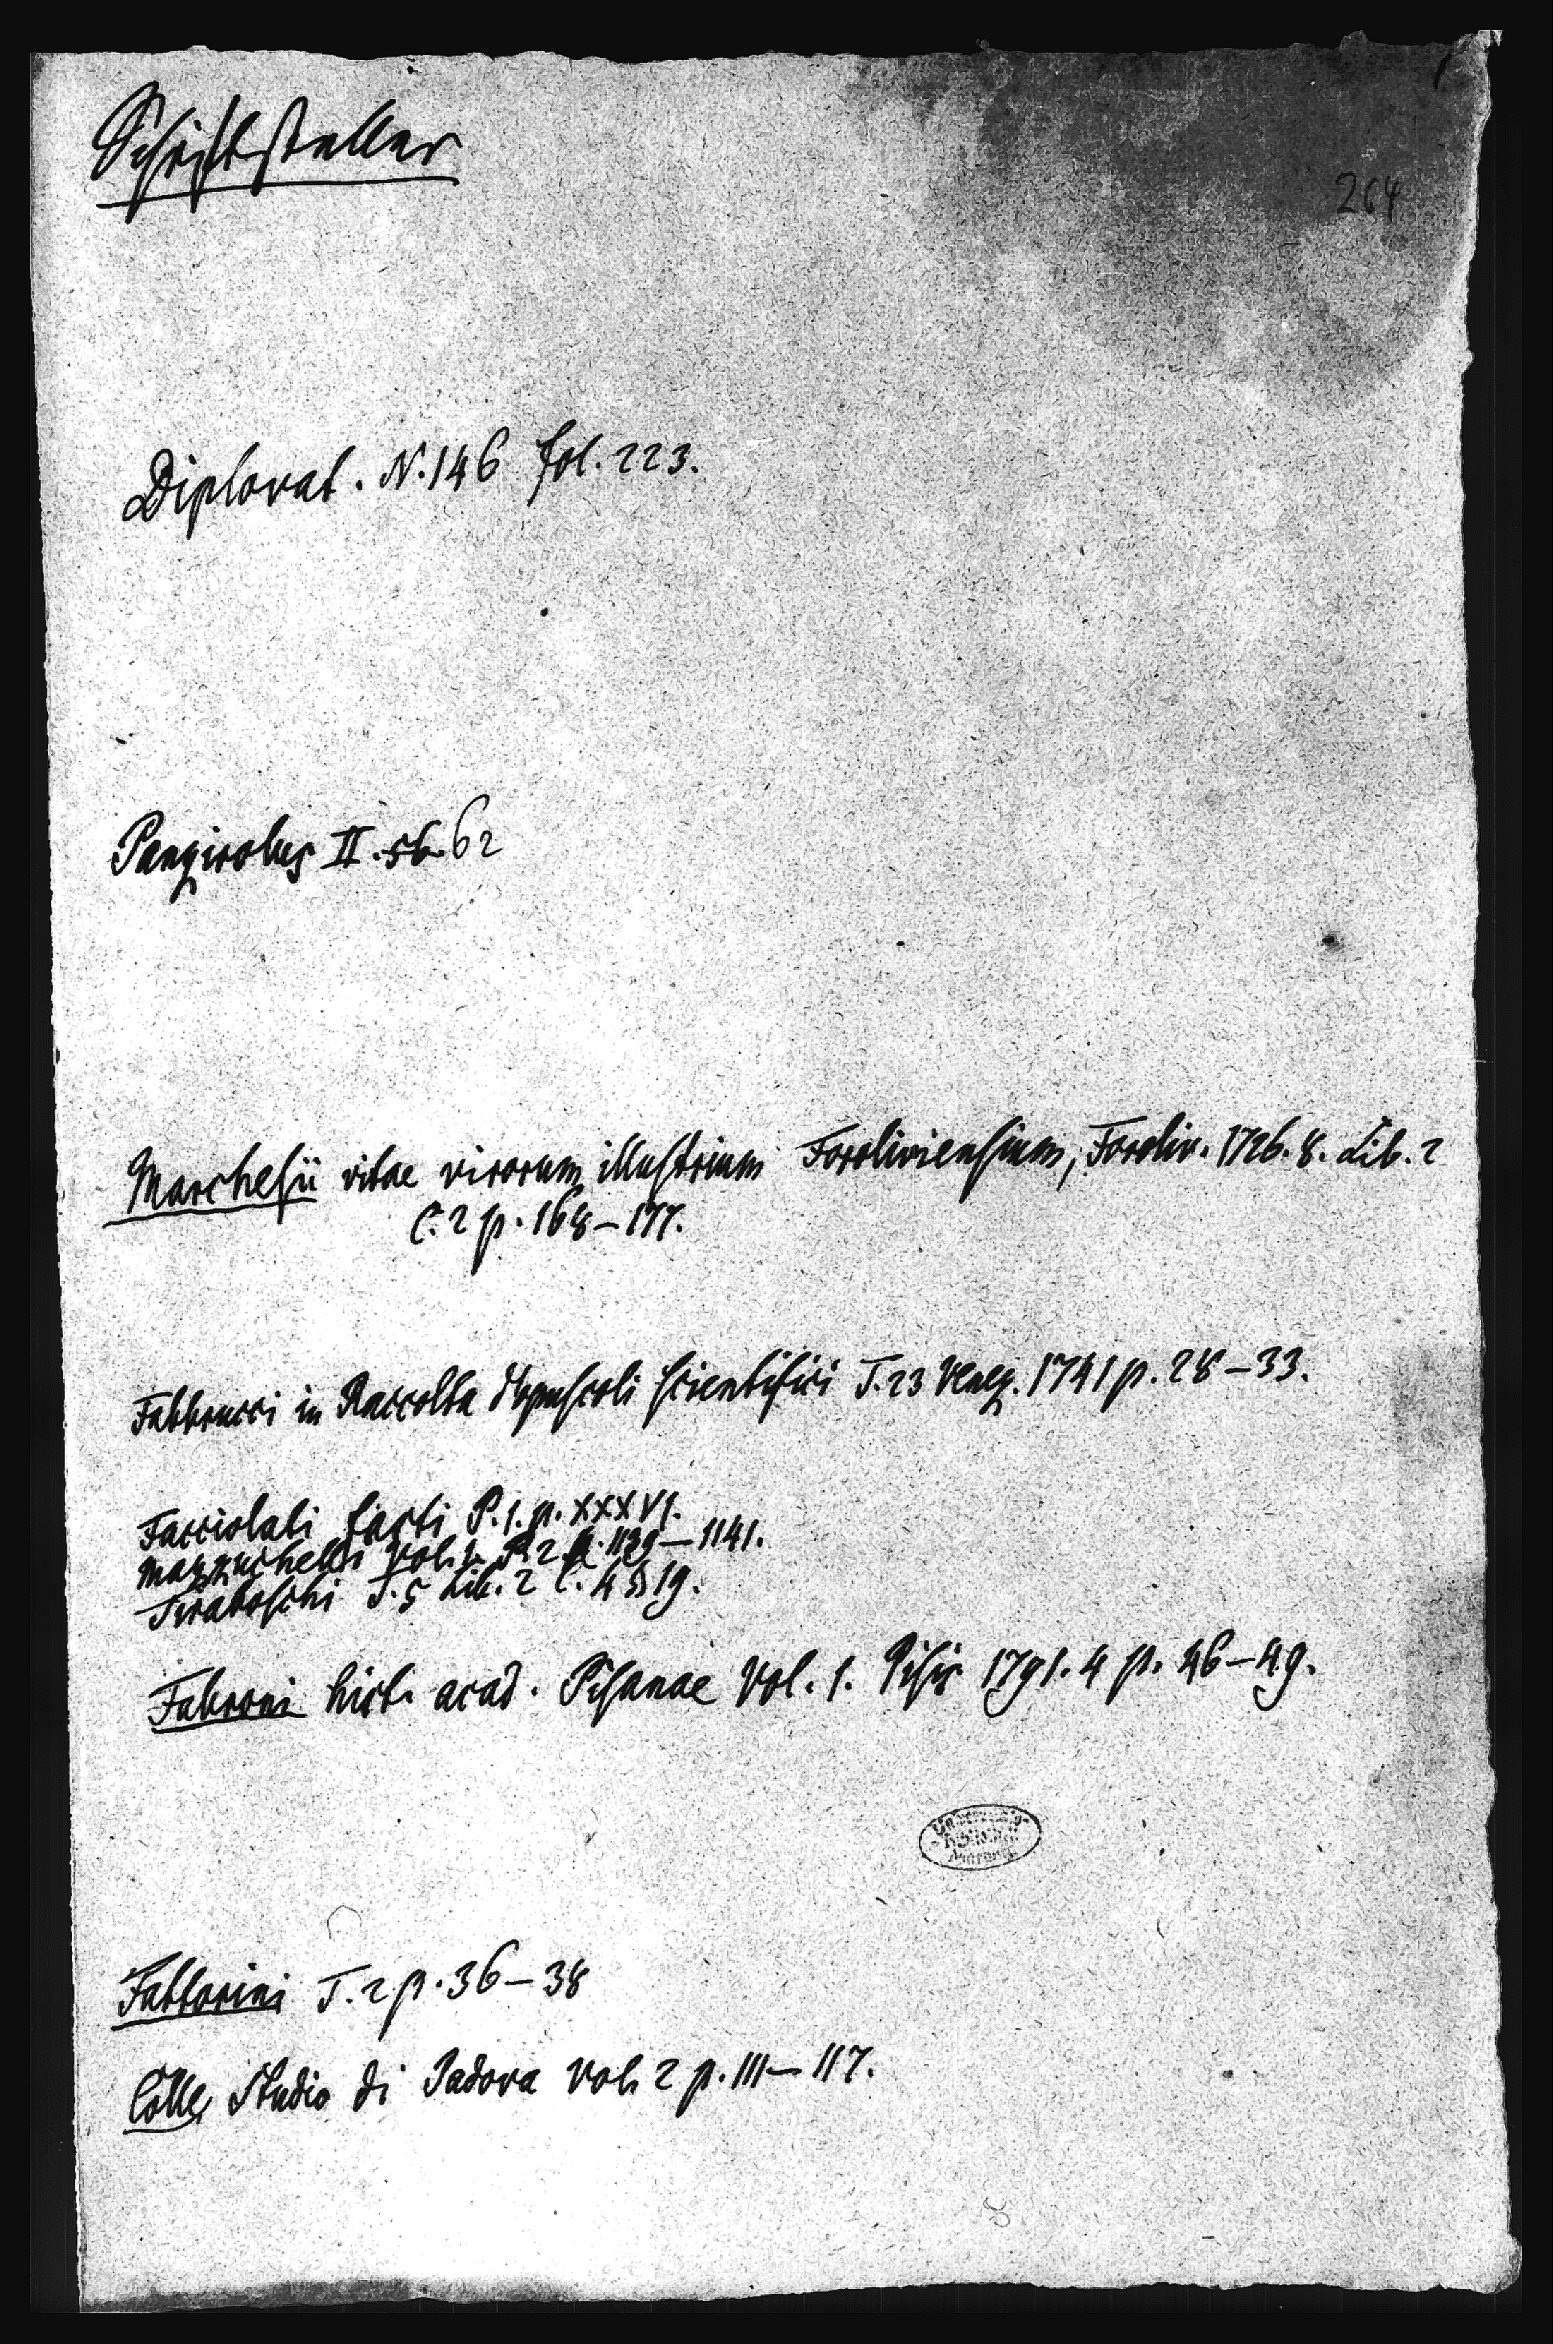 Schriftsteller
264
Diplovat. N. 146 fol. 223.
Panzirolus II. 56. 62
Marchesii vitae virorum illustrium Foroliviensium, Foroliv. 1726. 8. Lib. 2
C. 2 p. 168–177.
Fabbrucci in Raccolta d'opuscoli scientifici T. 23 Venez. 1741 p. 28–33.
Facciolati fasti P. 1. p. XXXVI.
Mazzuchelli Vol. 1. P. 2. p. 1139–1141.
Tiraboschi T. 5 Lib. 2 C. 4 § 19.
Fabroni hist. acad. Pisanae Vol. 1. Pisis 1791. 4 p. 46–49.
Fattorini T. 2 p. 36–38
Colle Studio di Padova Vol. 2 p. 111–117.